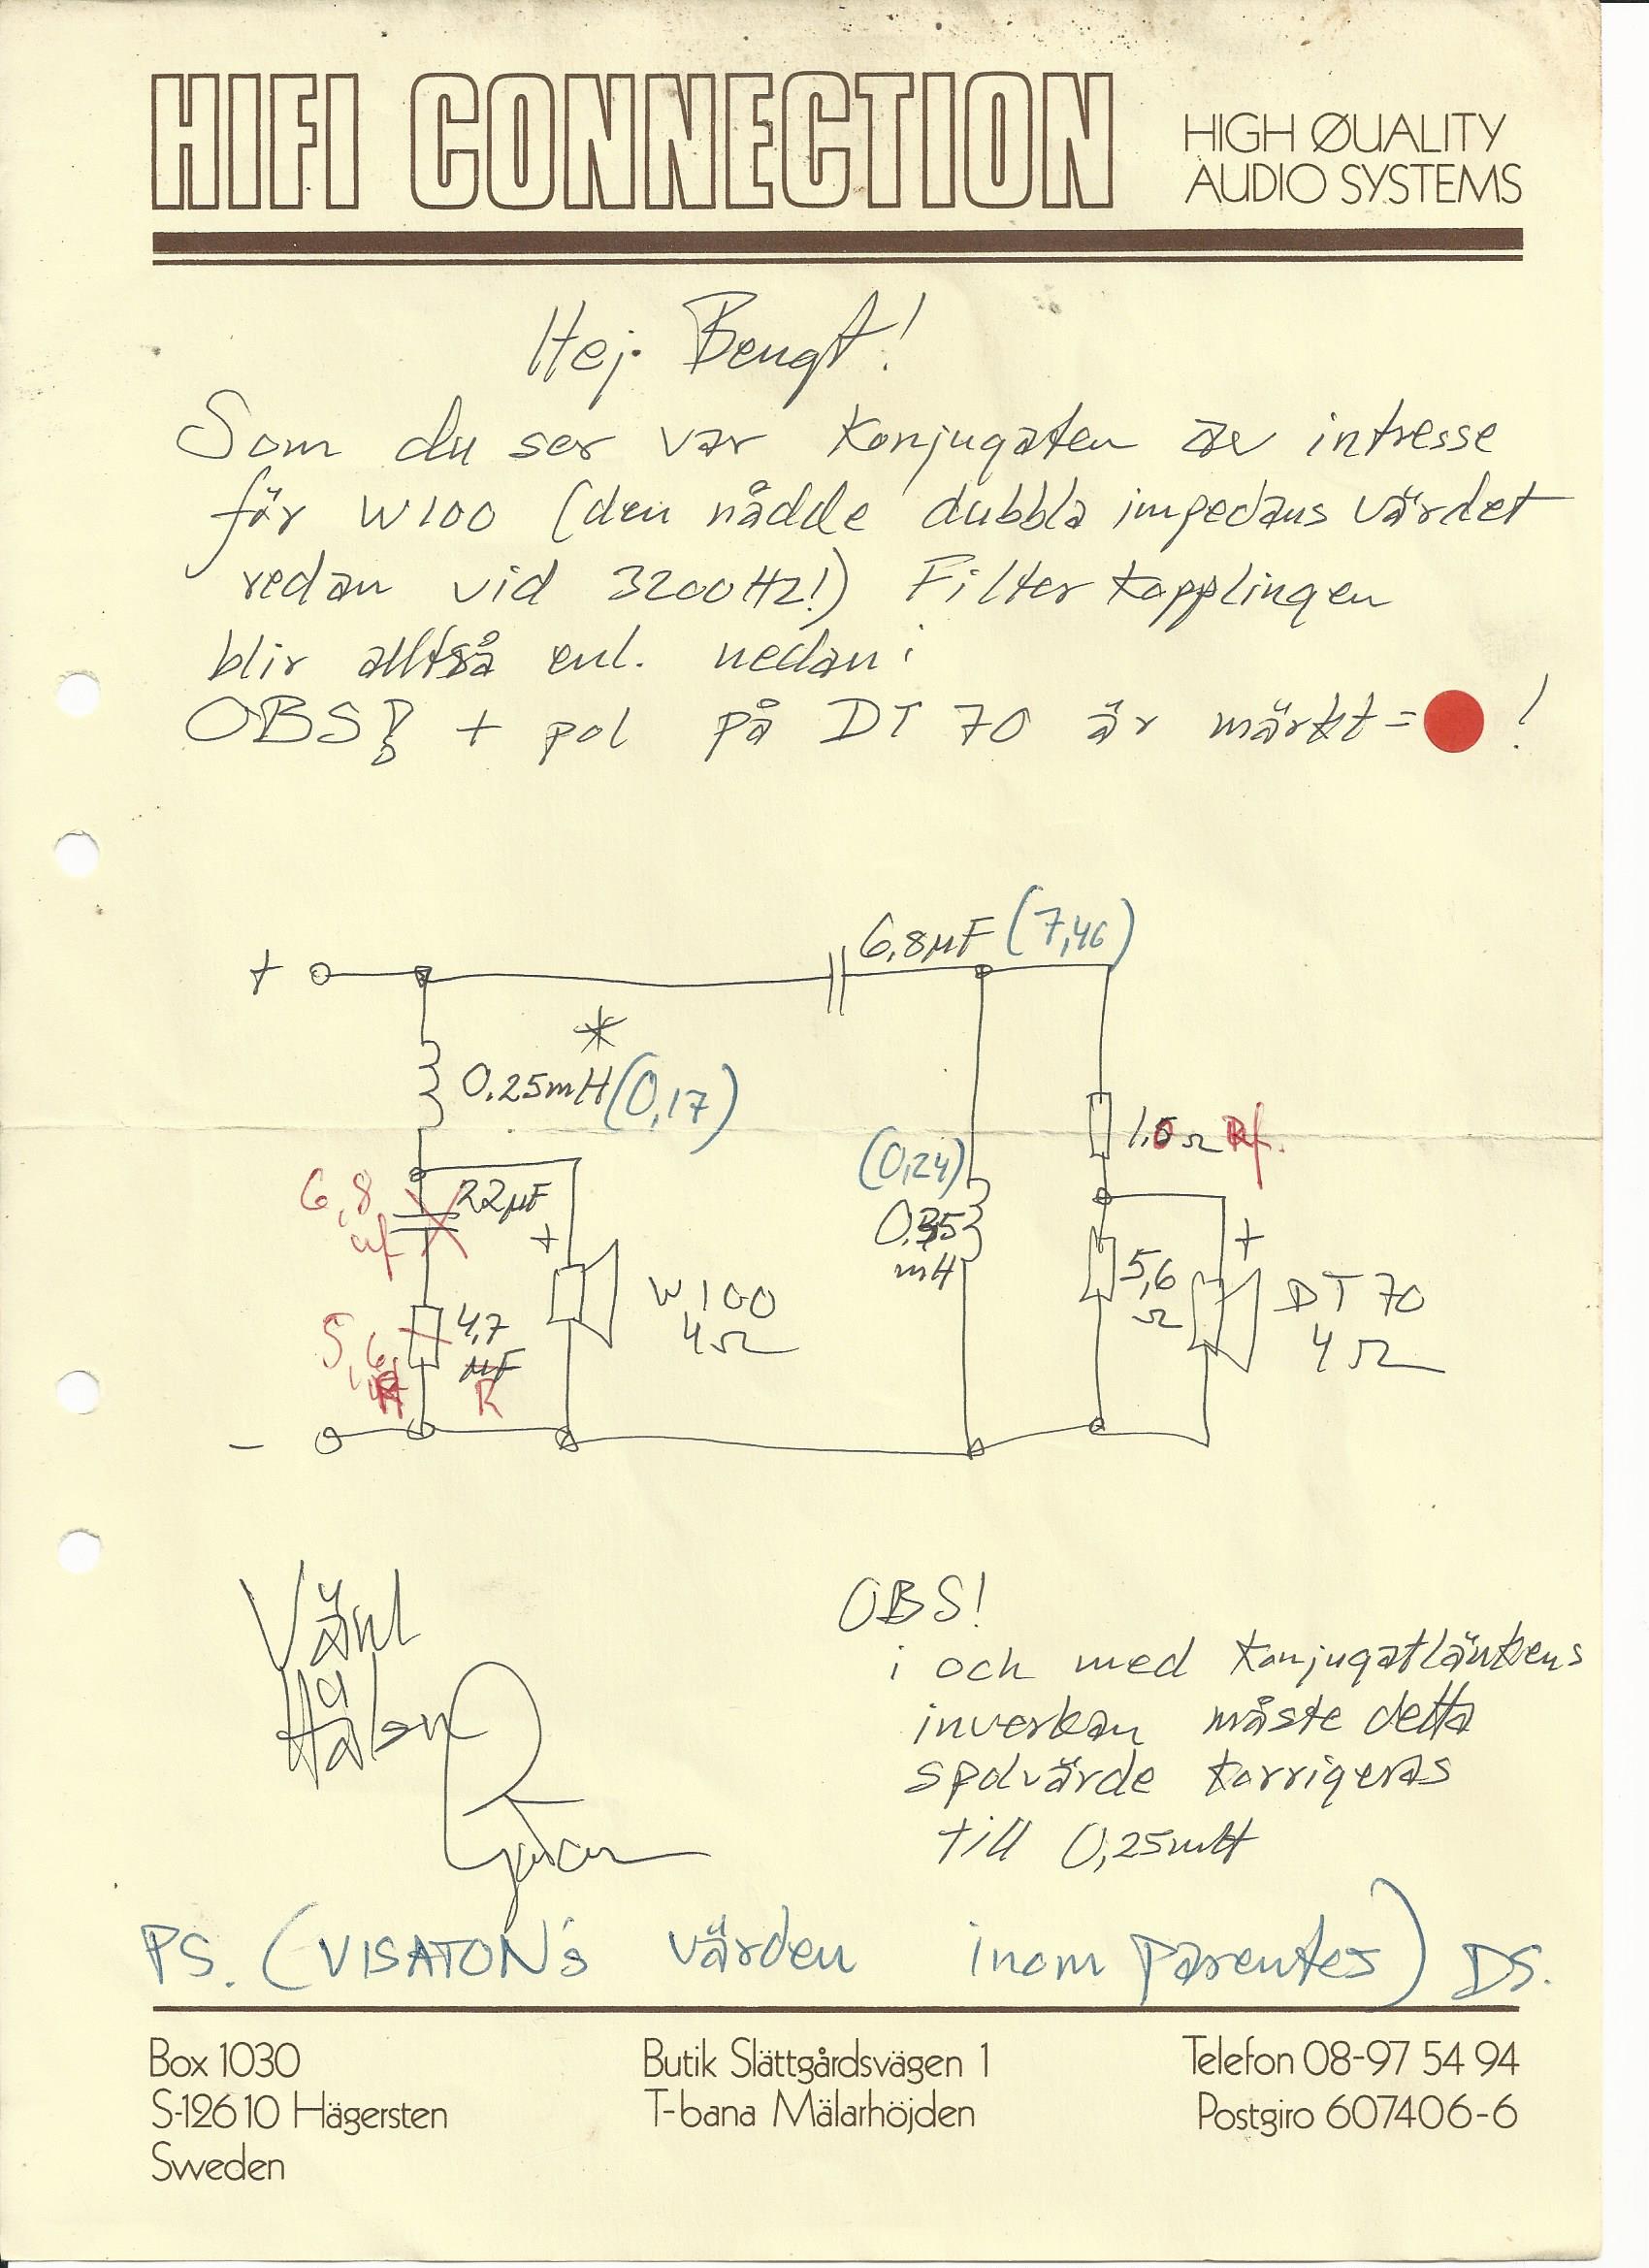 HIFI CONNECTION
HIGH QUALITY
AUDIO SYSTEMS
Hej Bengt!
Som du ser var konjugaten av intresse
för W100 (den nådde dubbla impedans värdet
redan vid 3200Hz!) Filterkopplingen
blir alltså enl. nedan:
OBS! + pol på DT 70 är märkt = !
6,8µF (7,46)
+
*
0,25mH (0,17)
(0,24)
1,0Ω
6,8 uf
22µF
0,35 mH
+
+
5,6 Ω
W100
4Ω
DT 70
4Ω
5,6
4,7
µF
R
-
Vänl
Häls
OBS!
i och med konjugatlänkens
inverkan måste detta
spolvärde korrigeras
till 0,25mH
PS. (VISATON's värden inom parentes) DS.
Box 1030
S-126 10 Hägersten
Sweden
Butik Slättgårdsvägen 1
T-bana Mälarhöjden
Telefon 08-97 54 94
Postgiro 607406-6